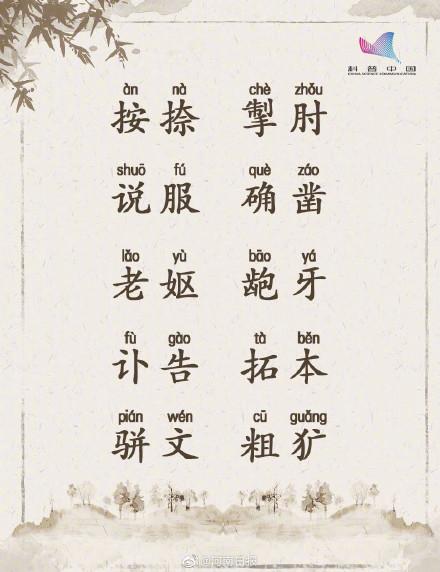 科普中国
CHINA SCIENCE COMMUNICATION
àn nà chè zhǒu
按捺 掣肘
shuō fú què záo
说服 确凿
lǎo yù bāo yá
老妪 龅牙
fù gào tà běn
讣告 拓本
pián wén cū guǎng
骈文 粗犷
@河南日报